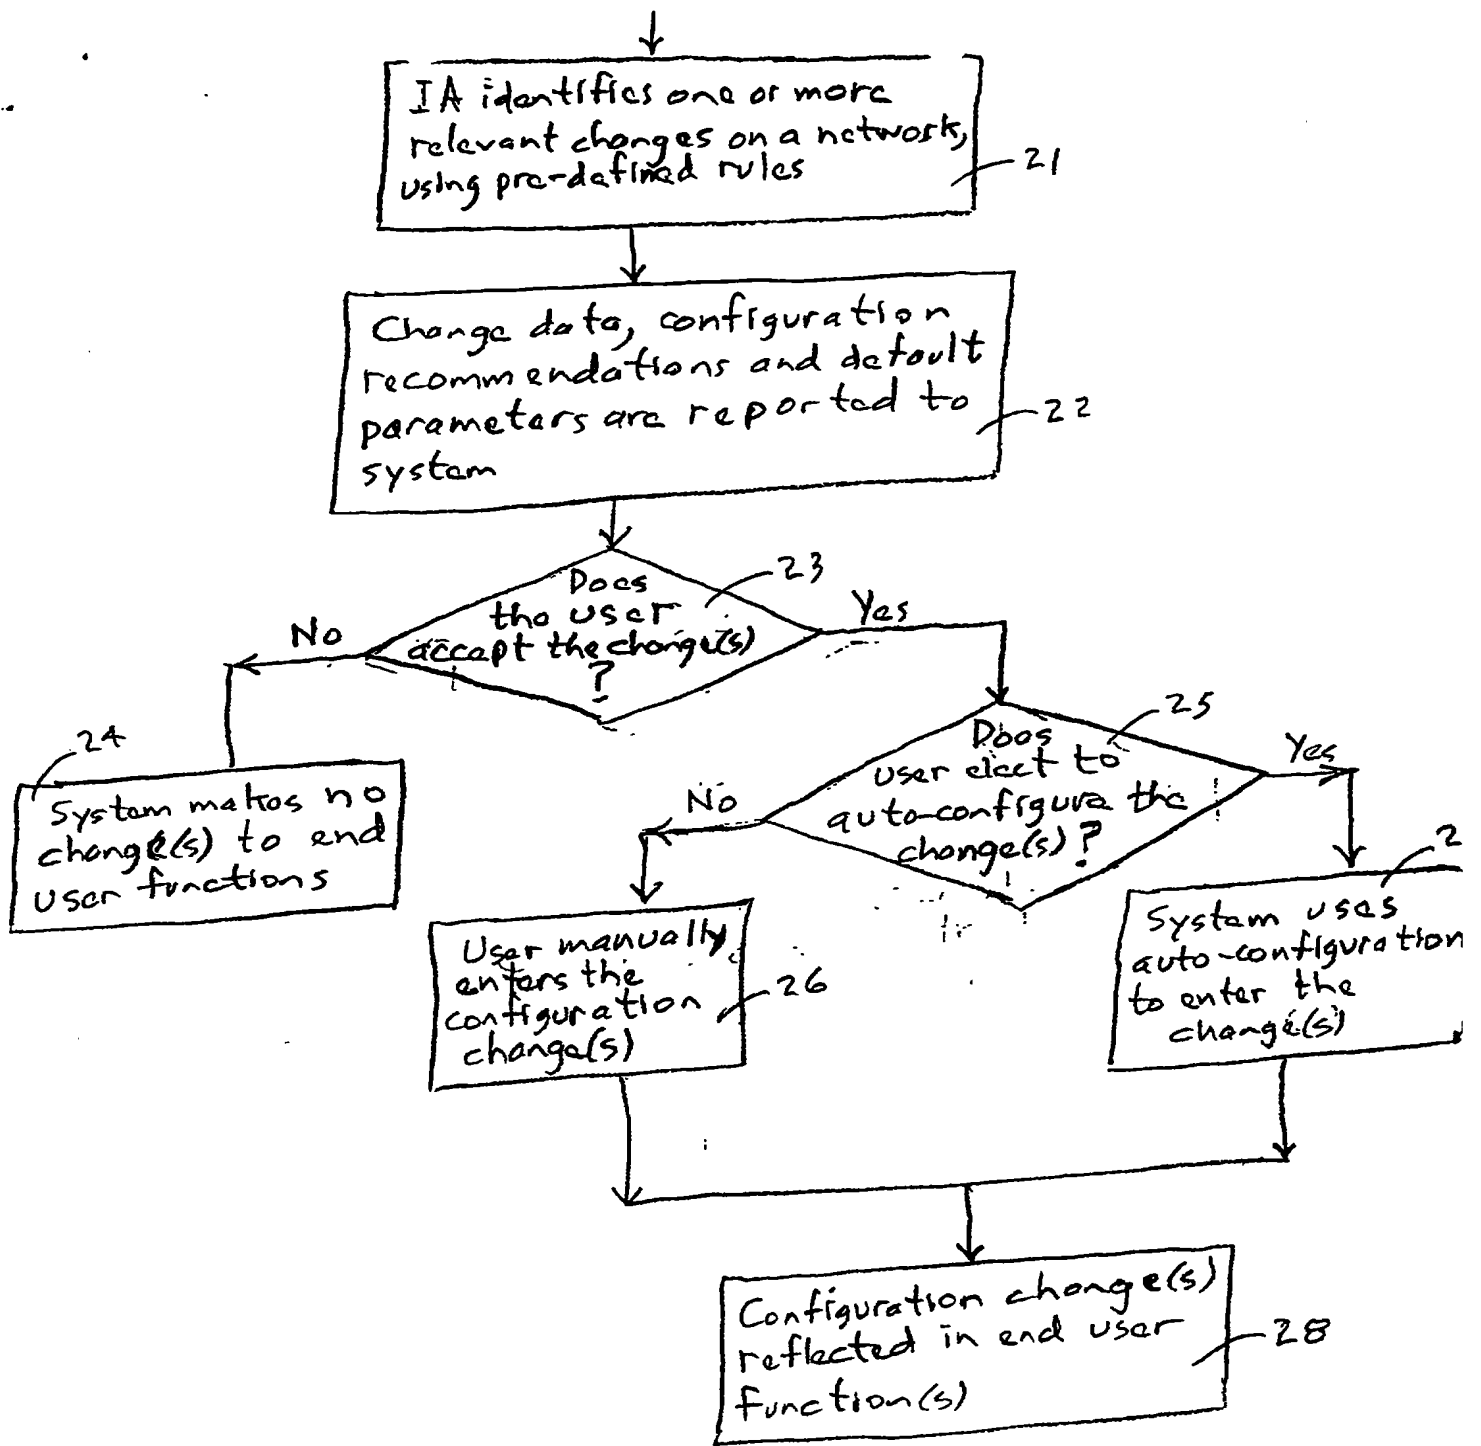 IA identifies one or more
relevant changes on a network,
using pre-defined rules
21
Change data, configuration
recommendations and default
parameters are reported to
system
22
Does
the user
accept the change(s)
?
23
No
Yes
24
System makes no
change(s) to end
user functions
Does
user elect to
auto-configure the
change(s)?
25
No
Yes
User manually
enters the
configuration
change(s)
26
2
System uses
auto-configuration
to enter the
change(s)
Configuration change(s)
reflected in end user
function(s)
28